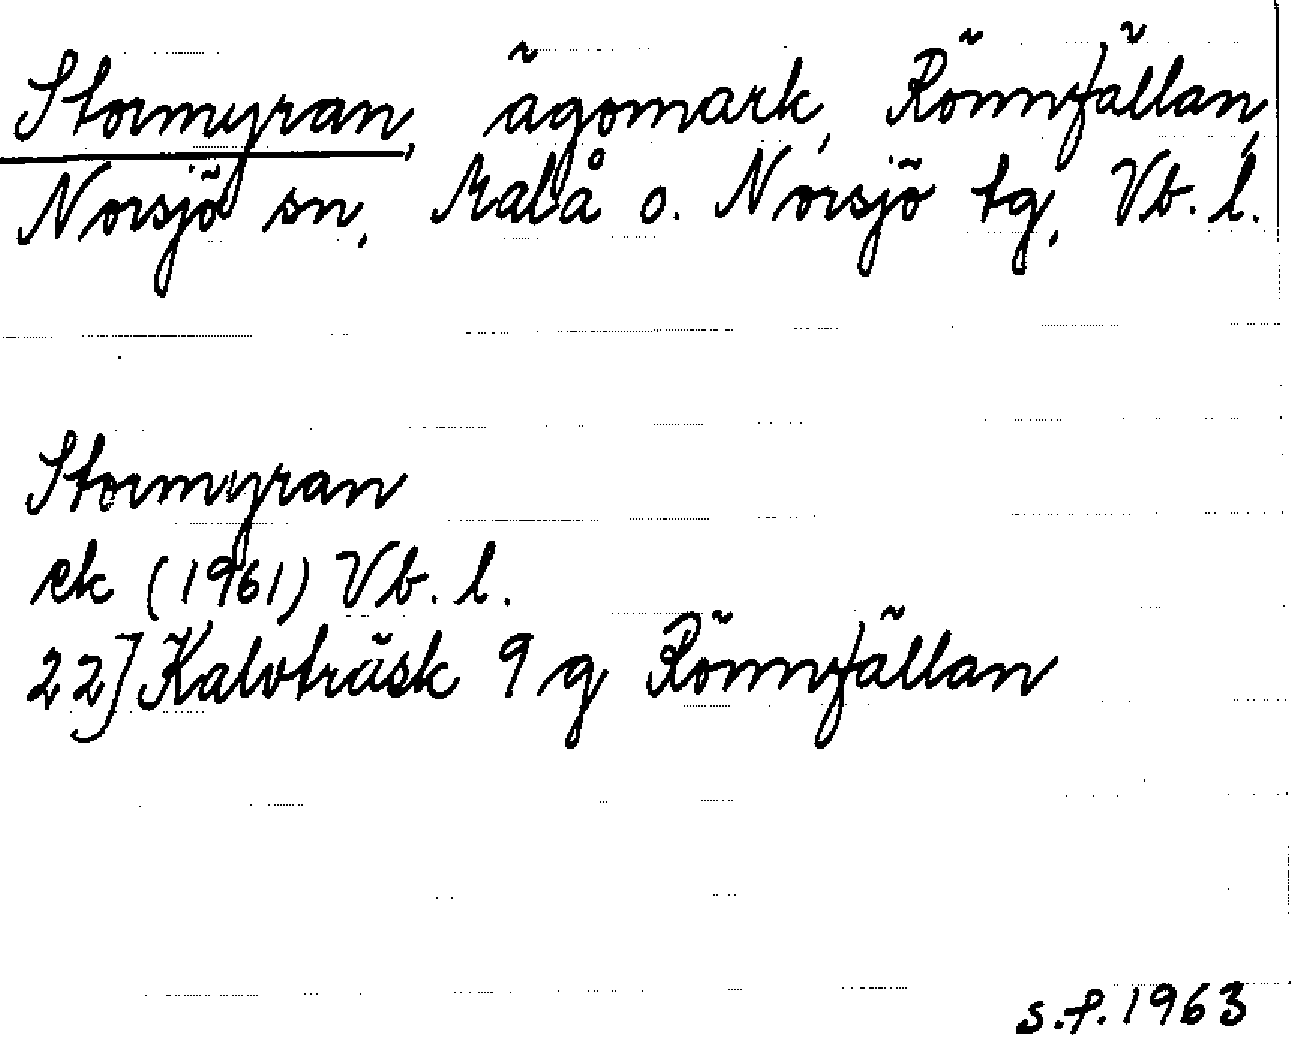 Stormyran, ägomark, Rönnfällan,
Norsjö sn, Malå o. Norsjö tg, Vb. l.
Stormyran
ek (1961) Vb. l.
22J Kalvträsk 9 g Rönnfällan
s.f. 1963